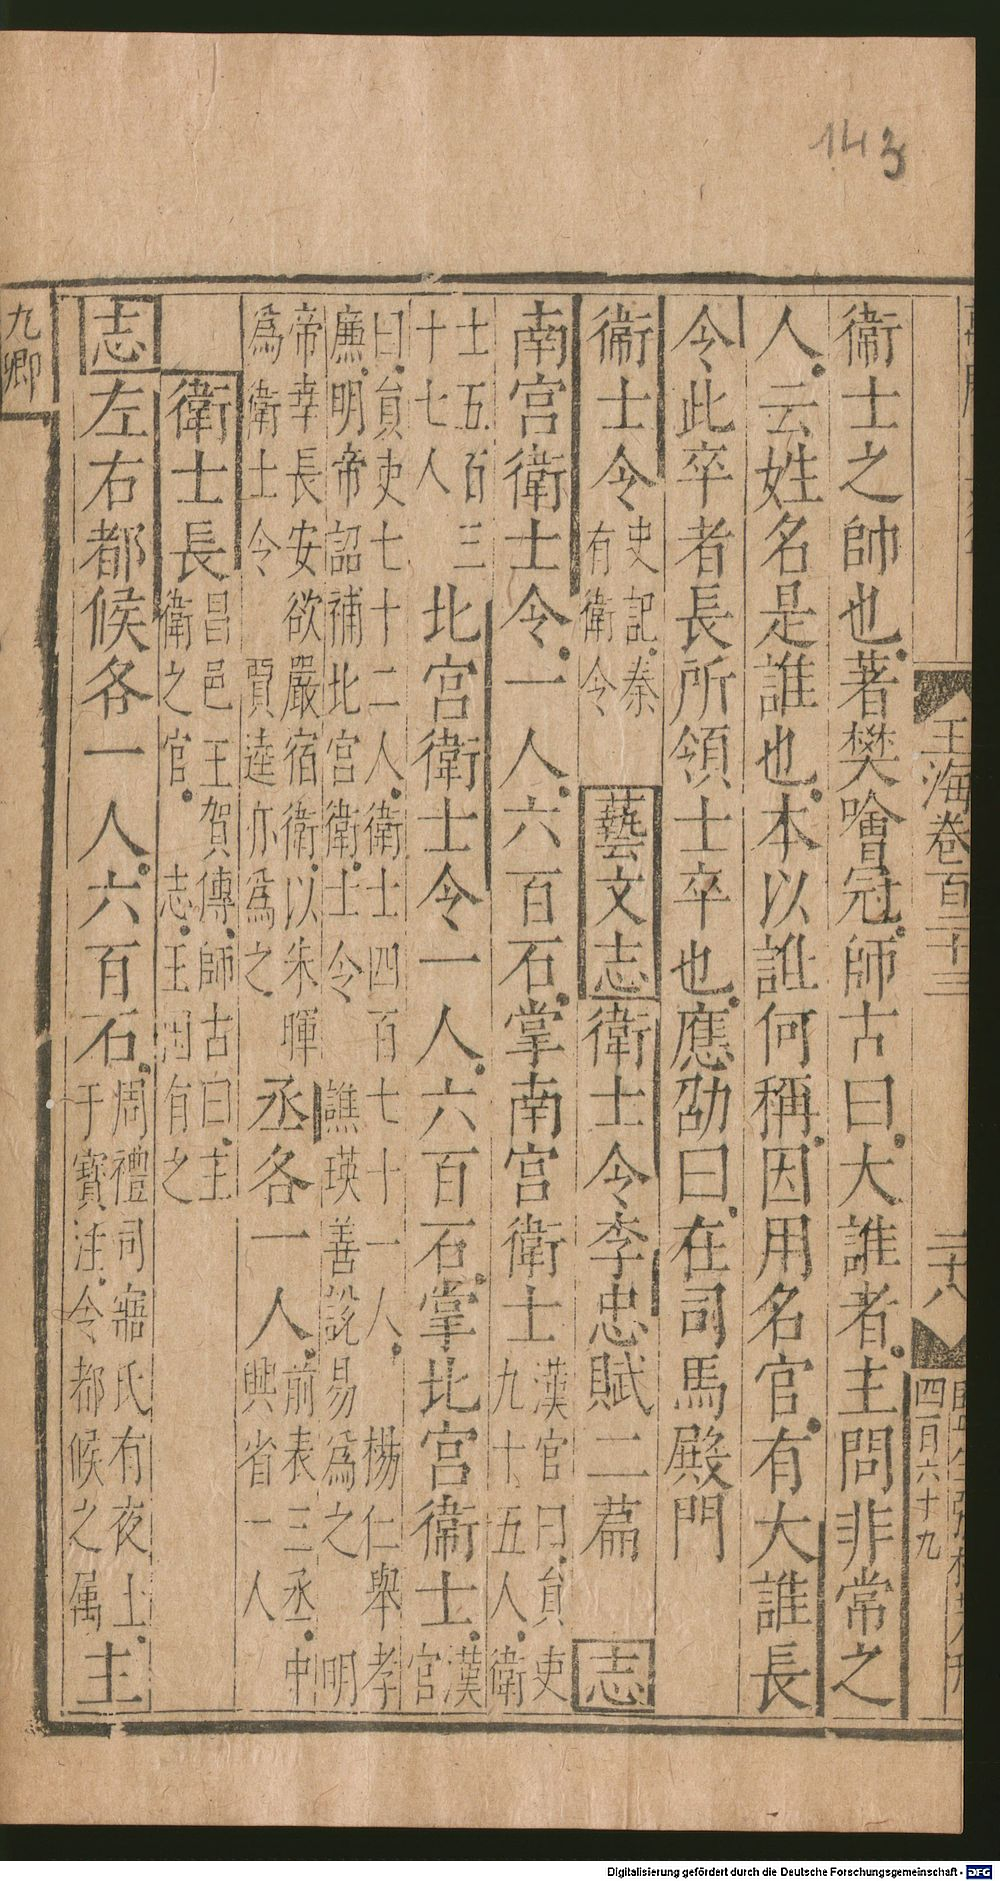 143
玉海卷百二十三
二十八
四百六十九
衞士之帥也著樊噲冠師古曰大誰者主問非常之
人云姓名是誰也本以誰何稱因用名官有大誰長
令此卒者長所領士卒也應劭曰在司馬殿門
衞士令史記秦有衛令 藝文志衛士令李忠賦二篇 志
南宮衛士令一人六百石掌南宮衛士漢官曰員吏九十五人衛
士五百三十七人 北宮衛士令一人六百石掌北宮衛士漢官
曰員吏七十二人衛士四百七十一人 楊仁舉孝廉明帝詔補北宮衛士令 譙瑛善說易為之 明
帝幸長安欲嚴宿衛以朱暉為衛士令 賈逵亦為之 丞各一人前表三丞中興省一人
衛士長昌邑王賀傳師古曰主衛之官 志王國有之
志左右都候各一人六百石周禮司寤氏有夜士干寶注今都候之属主
九卿
Digitalisierung gefördert durch die Deutsche Forschungsgemeinschaft - DFG